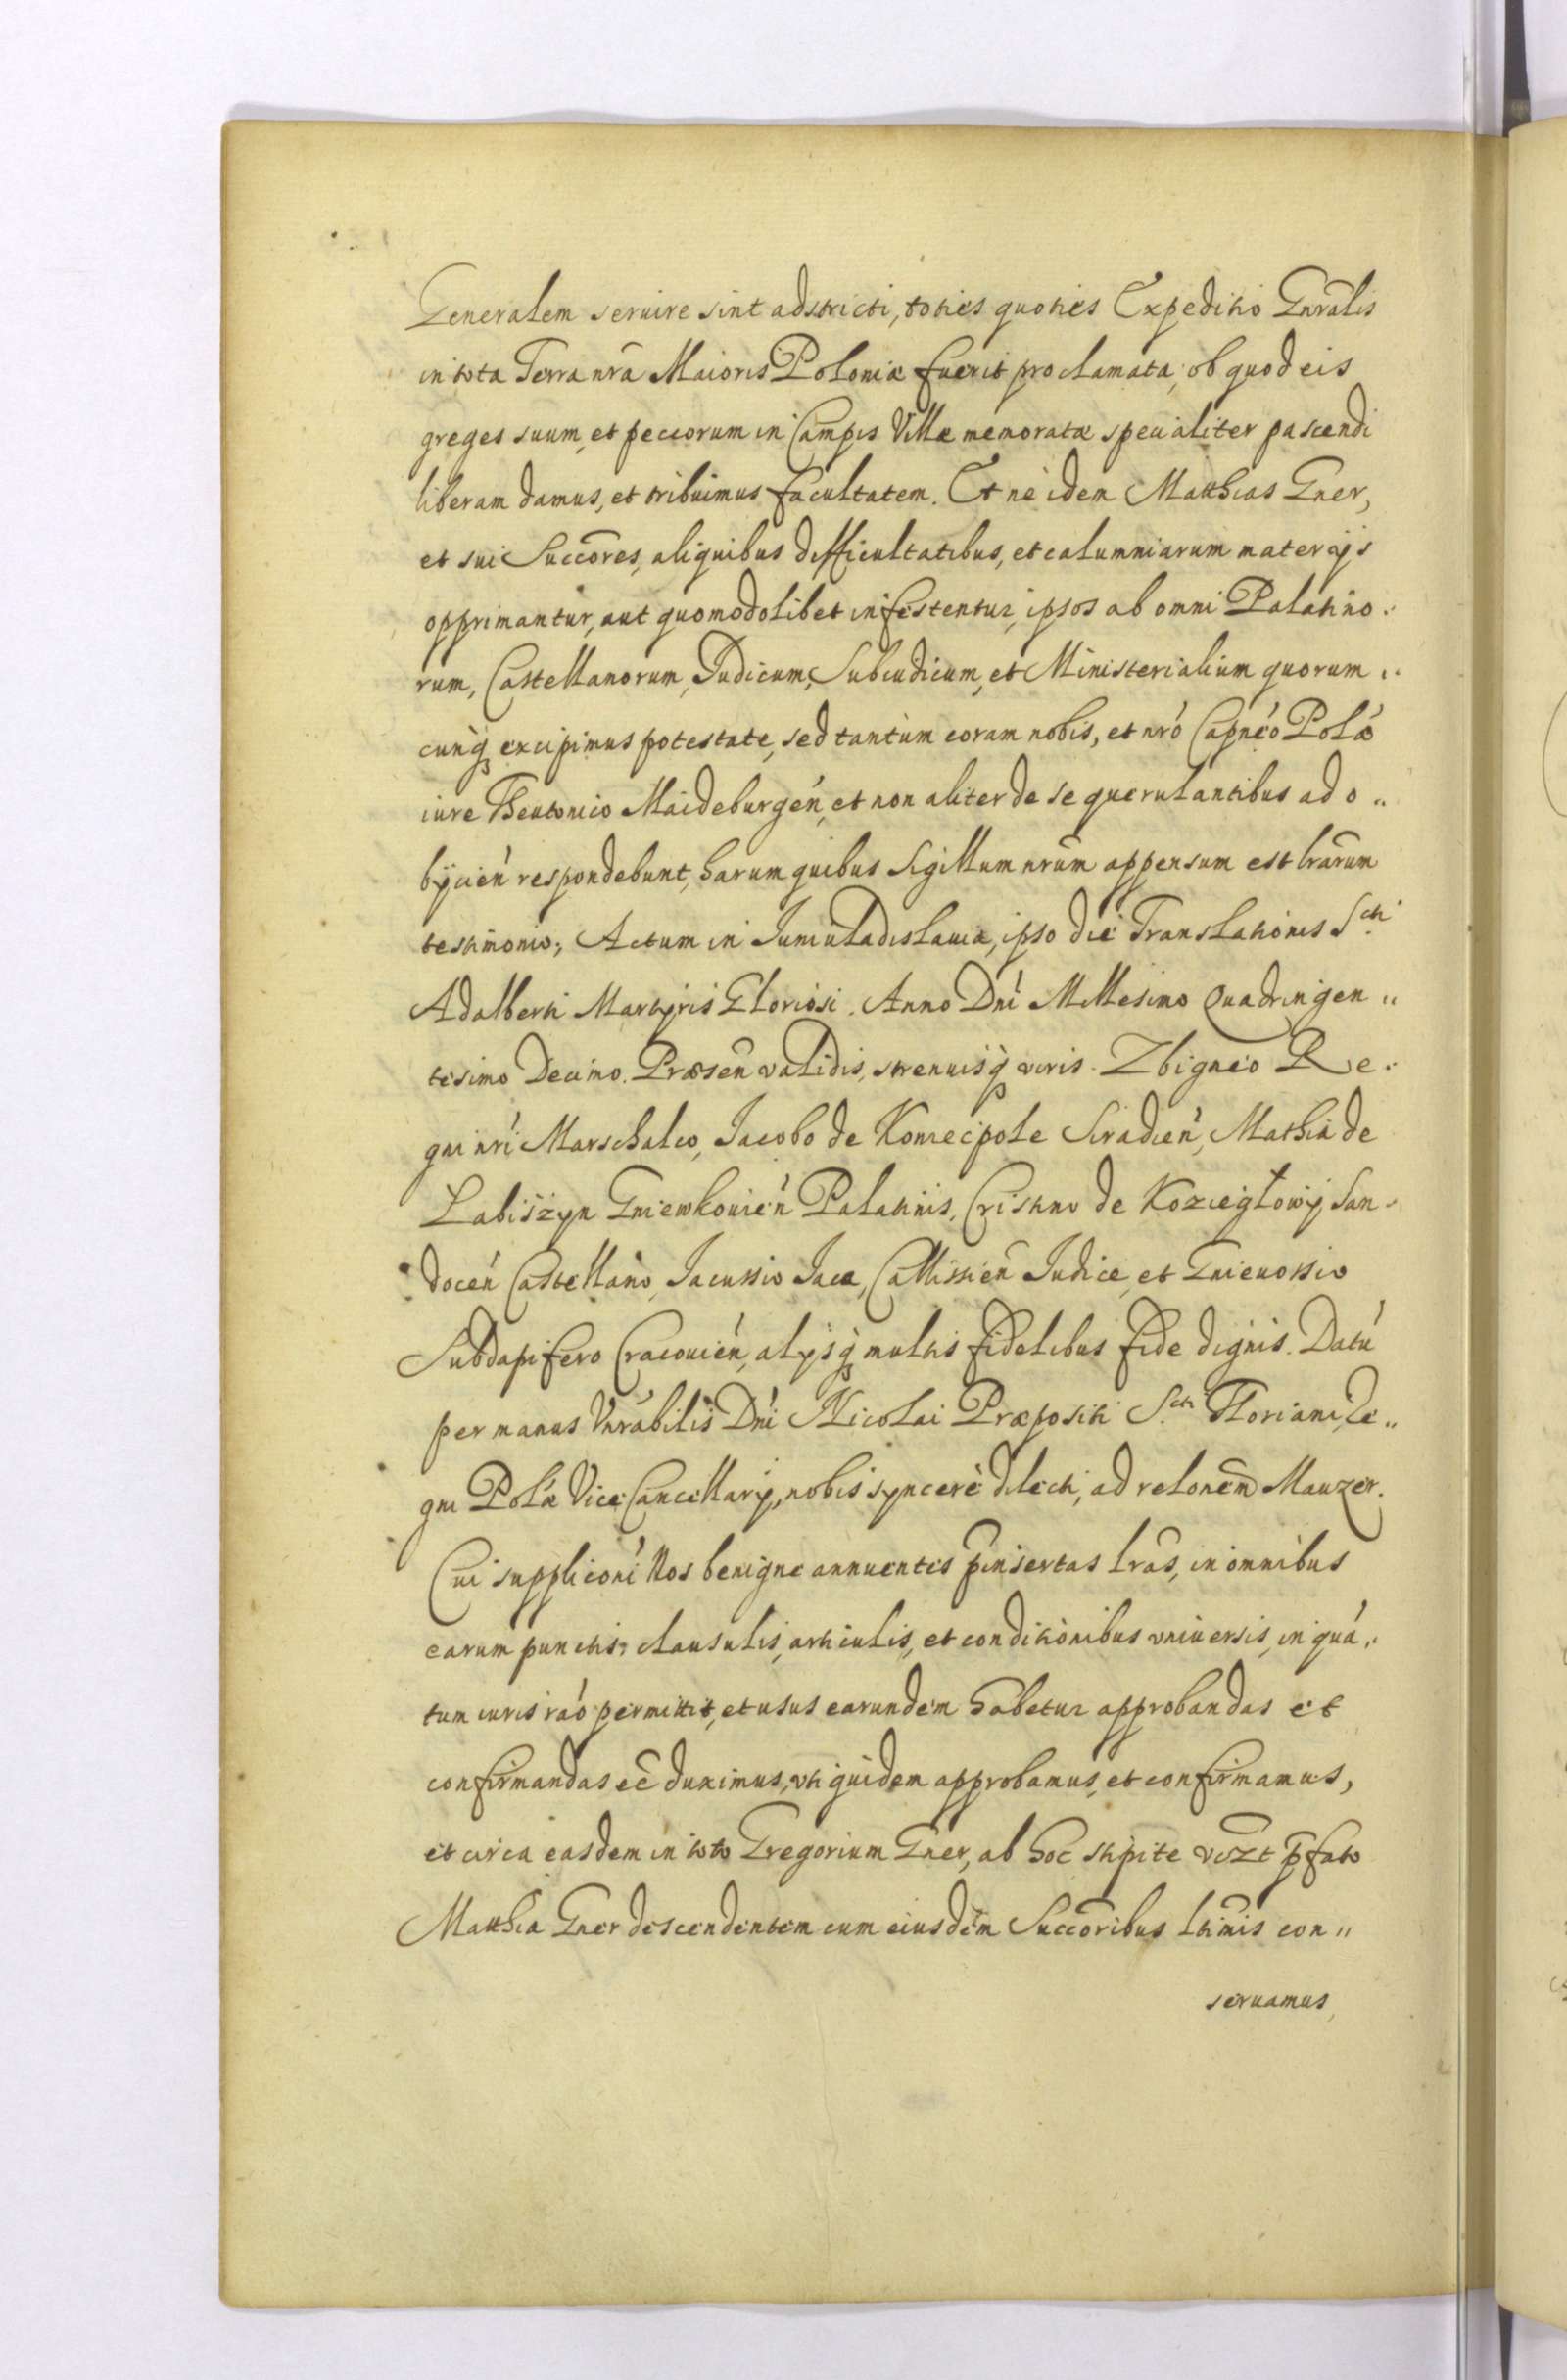 Generalem seruire sint adstricti, toties quoties Expeditio Gnrãlis
in tota Terra nrã Maioris Poloniæ fuerit proclamata, ob quod eis
greges suum, et pecorum in Campis Villæ memoratæ specialiter pascendi
liberam damus, et tribuimus facultatem. Et ne idem Matthias Gner,
et sui Succõres, aliquibus difficultatibus, et calumniarum materijs
opprimantur, aut quomodolibet infestentur, ipsos ab omni Palatino:
rum, Castellanorum, Judicum, Subiudicum, et Ministerialium quorum„
cunq́ꝫ excipimus potestate, sed tantùm coram nobis, et nró Capnéo Polǽ
iure Theutonico Maideburgeń, et non aliter de se querulantibus ad o„
bijcień respondebunt, harum quibus Sigillum nrũm appensum est lrãrum
testimonio; Actum in Juniuladislauia, ipso die Translationis S.cti
Adalberti Martyris Gloriosi. Anno Dní Millesimo Quadringen„
tesimo Decimo. Præseñ validis, strenuisq́ꝫ viris. Zbigneo Re:
gni nrí Marschalco, Jacobo de Koniecpole Siradień, Mathia de
Labiszyn Gniewkouień Palatinis, Cristino de Koziegłowÿ San:
doceń Castellano, Jacussio Jaca, Callissień Judice, et Gnieuossio
Subdapifero Cracouień, alijsq́ꝫ multis fidelibus fide dignis. Datú
per manus Vnrábilis Dní Nicolai Præpositi S.cti Floriani, Re„
gni Polǽ Vice Cancellarij, nobis syncerè dilecti, ad relonẽm Mauzer.
Cui suppliconí Nos benigne annuentes p̃insertas lrãs, in omnibus
earum punctis, clausulis, articulis, et conditionibus vniuersis, in quá„
tum iuris raó permittit, et usus earundem habetur approbandas et
confirmandas eẽ duximus, vti quidem approbamus, et confirmamus,
et circa easdem in toto Gregorium Gner, ab hoc stipite vidzt p̃fato
Matthia Gner descendentem cum eiusdem Succõribus ltĩmis con„
seruamus,